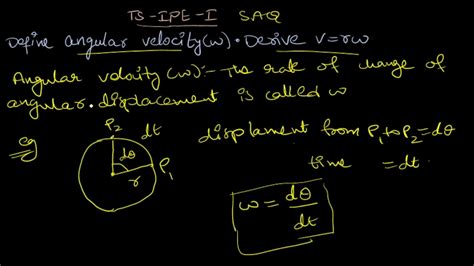 TS-IPE-I SAQ
Define angular velocity(ω). Derive v=rω
Angular velocity (ω):- The rate of change of
angular displacement is called ω
eg
P2 dt
dθ
r P1
displament from P1 to P2 = dθ
time = dt
ω = dθ/dt